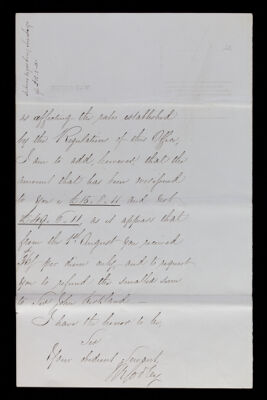 as affecting the rules established
by the Regulations of this Office,
I am to add, however, that the
amount that has been overissued
to you is £15. 2. 11 and not
as it appears that
from the 1st August you received
per diem only, and to request
you to refund the smaller sum
to Sir John Kirkland.
I have the honor to be,
Sir
Your obedient Servant,